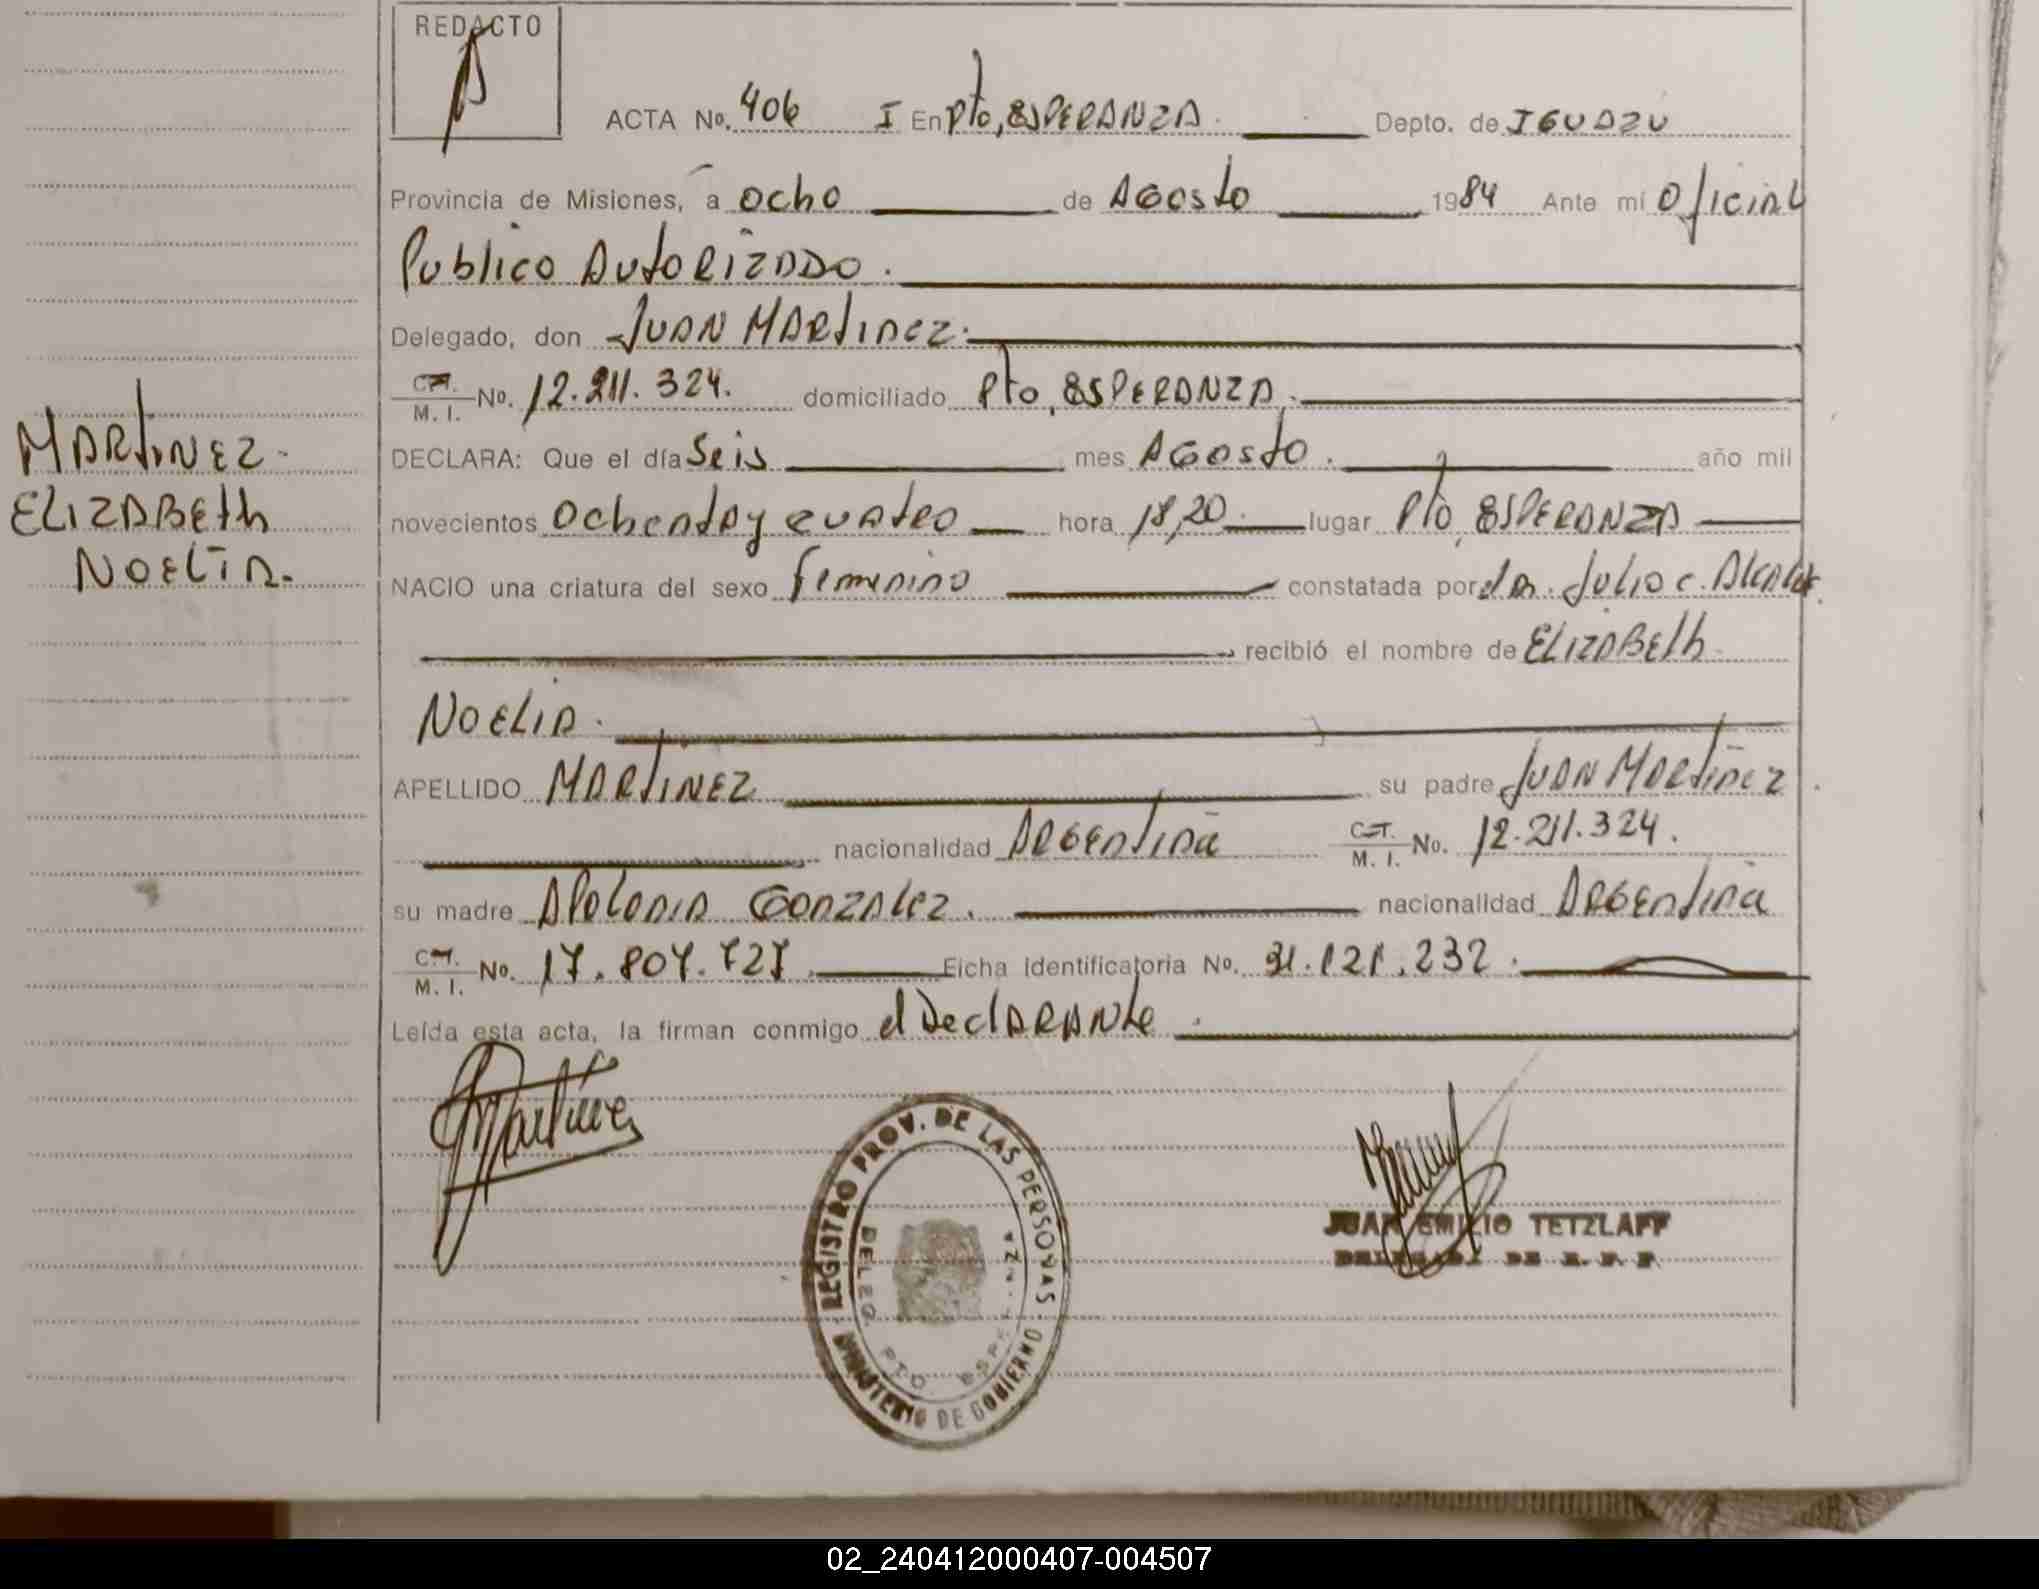 REDACTO
ACTA No. 406 I En Pto, ESPERANZA. Depto. de IGUAZU
Provincia de Misiones, a ocho de Agosto 1984 Ante mí Oficial
Publico Autorizado.
Delegado, don JUAN MARTINEZ.
C.I. M. I. No. 12.211.324. domiciliado Pto, ESPERANZA.
MARTINEZ.
DECLARA: Que el día Seis mes Agosto. año mil
ELIZABEth
novecientos Ochenta y cuatro hora 18,20. lugar Pto, ESPERANZA
NOELIA.
NACIO una criatura del sexo femenino constatada por el Dr. Julio C.
recibió el nombre de ELIZABEth
NOELIA.
APELLIDO MARTINEZ su padre JUAN MARTINEZ
nacionalidad Argentina C.I. M. I. No. 12.211.324.
su madre APOLONIA GONZALEZ. nacionalidad Argentina
C.I. M. I. No. 17.807.727. Ficha identificatoria No. 31.121.232.
Leída esta acta, la firman conmigo el DeclARANte.
REGISTRO PROV. DE LAS PERSONAS
MINISTERIO DE GOBIERNO
DELEG. PTO. ESPERANZA
JUAN EMILIO TETZLAFF
02_240412000407-004507